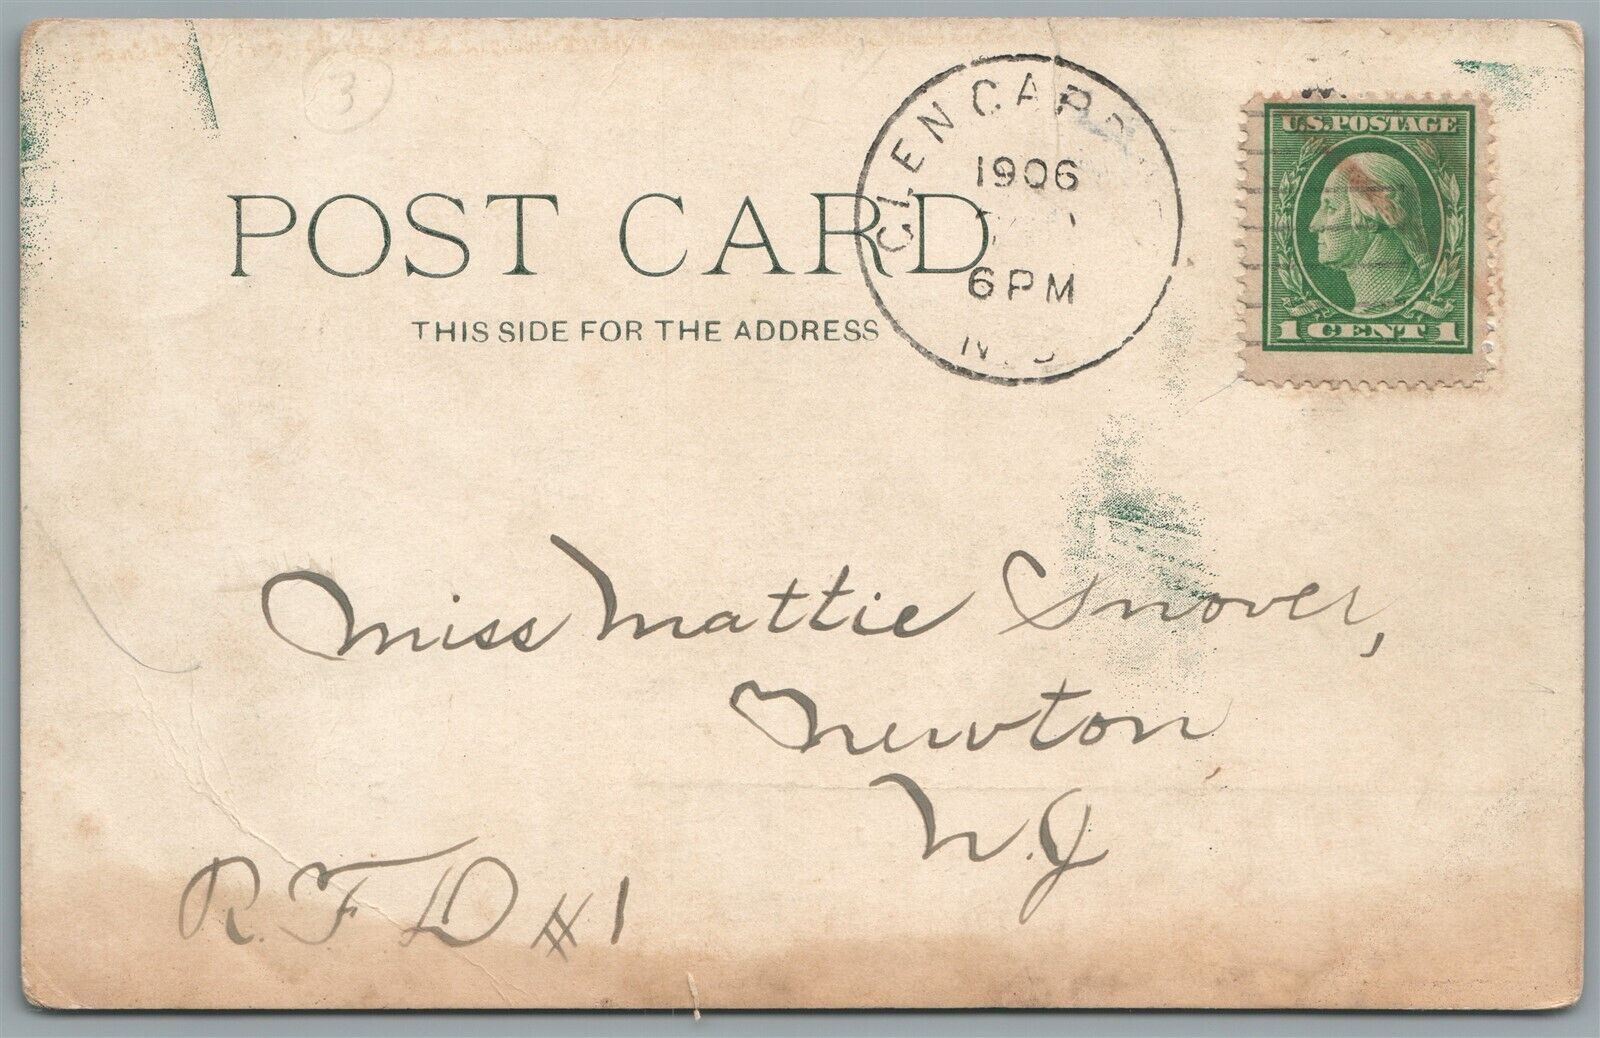 3
U.S.POSTAGE
1906
POST CARD
6 PM
1 CENT 1
THIS SIDE FOR THE ADDRESS
Miss Mattie Snover,
Newton,
N.J.
R.F.D #1